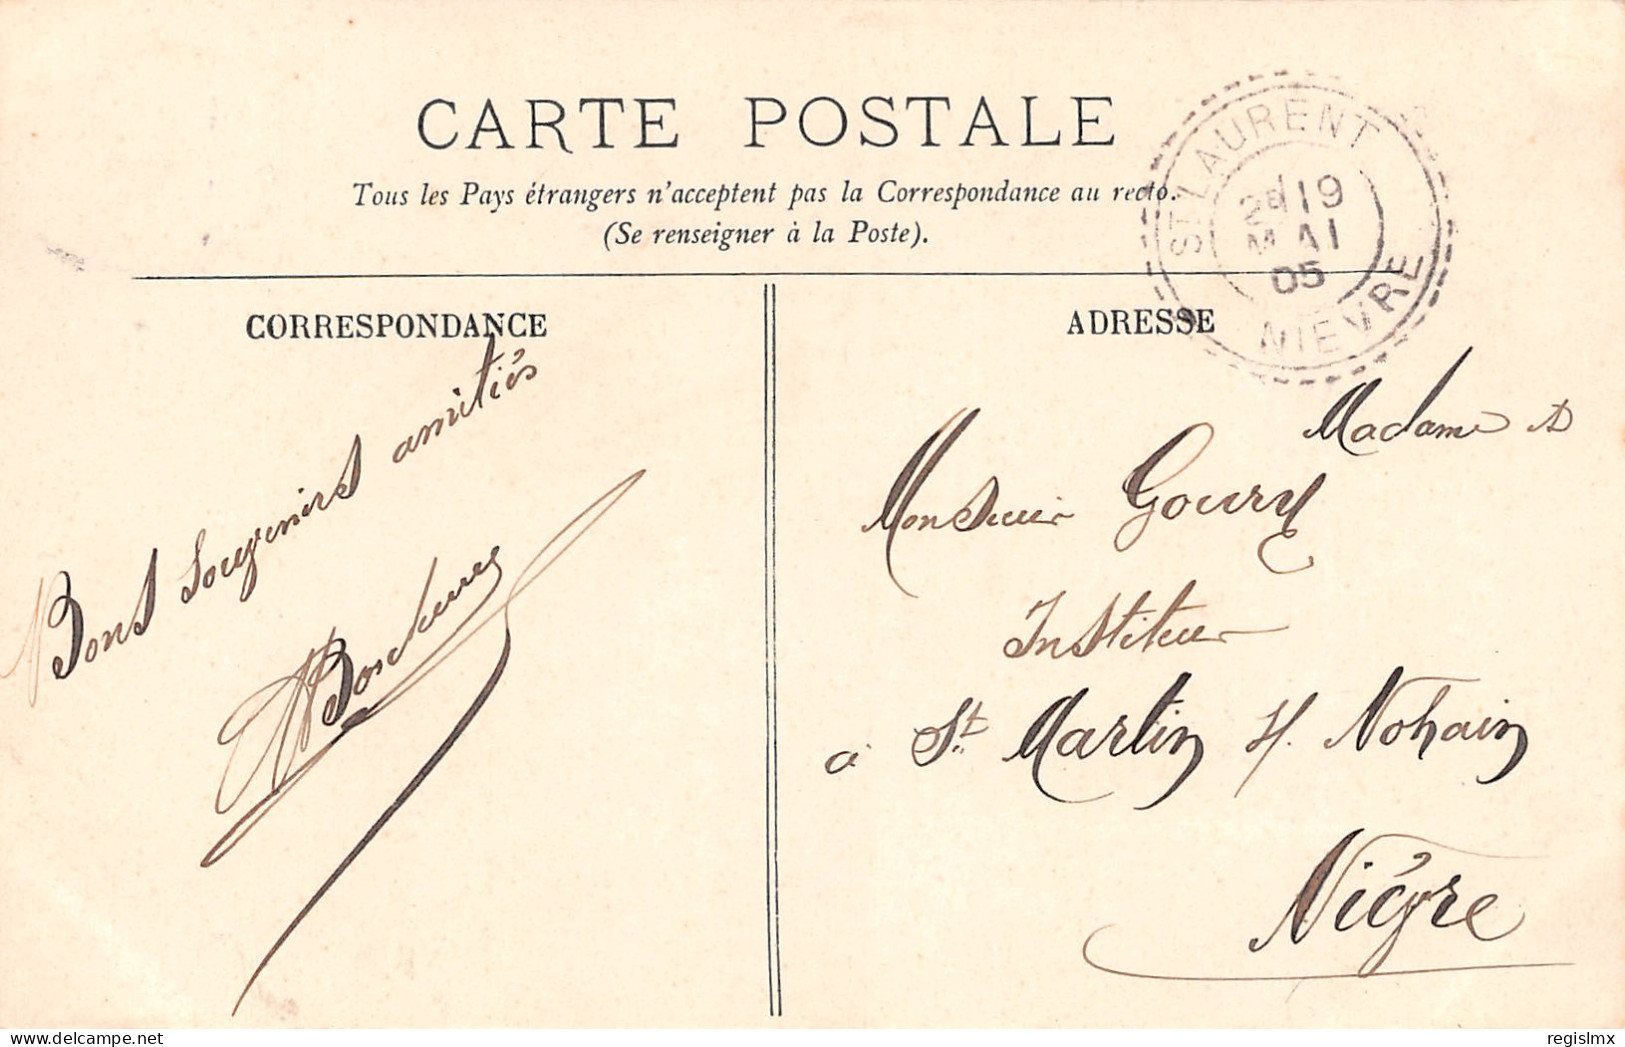 CARTE POSTALE
Tous les Pays étrangers n'acceptent pas la Correspondance au recto.
(Se renseigner à la Poste).
ST LAURENT
2e 19
MAI
05
NIEVRE
CORRESPONDANCE
Bons Souvenirs amitiés
ADRESSE
Madame &
Monsieur Goury
Instituteur
à St. Martin s/. Nohain
Nièvre
delcampe.net
regislmx